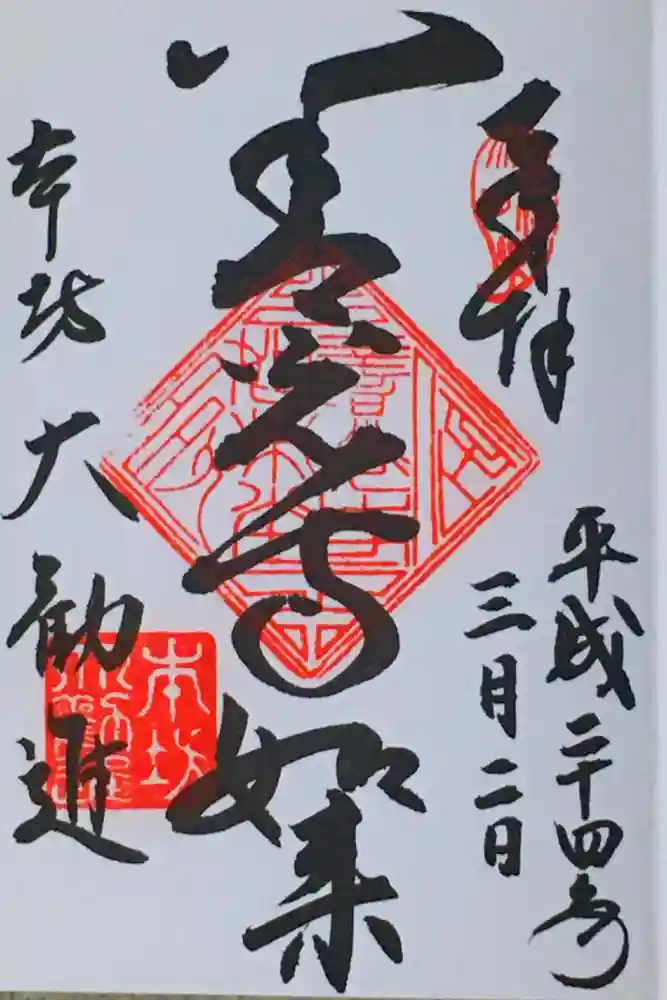 奉拝
平成二十四年
三月二日
善光寺如来
本坊 大勧進
本坊